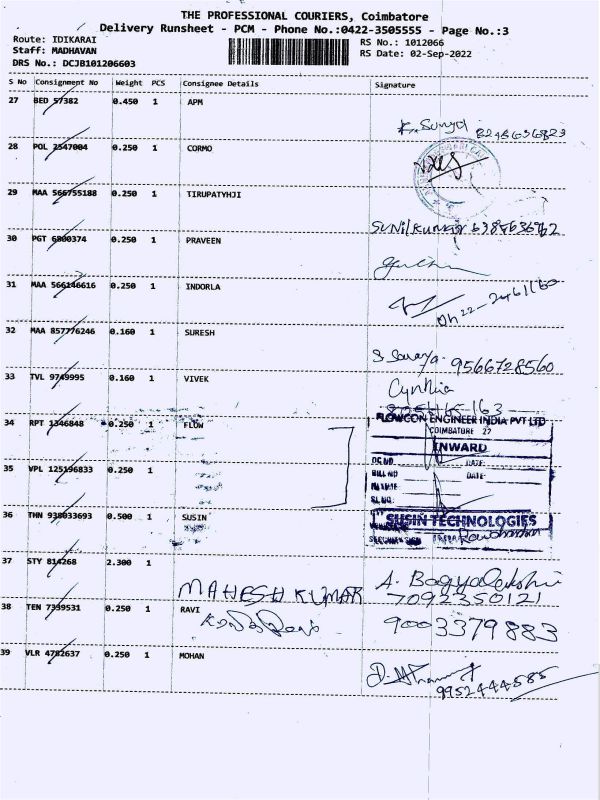 THE PROFESSIONAL COURIERS, Coimbatore
Delivery Runsheet - PCM - Phone No.:0422-3505555 - Page No.:3
Route: IDIKARAI RS No.: 1012066
Staff: MADHAVAN RS Date: 02-Sep-2022
DRS No.: DCJB101206603
S No Consignment No Weight PCS Consignee Name/Details Signature
27 BED 57382 0.450 1 APM
28 POL 2547004 0.250 1 CORMO
29 MAA 566755188 0.250 1 TIRUPATYHJI
Sunil Kumar
30 PGT 6800374 0.250 1 PRAVEEN
31 MAA 566146616 0.250 1 INDORLA
32 MAA 857776246 0.160 1 SURESH
9566728560
33 TVL 9749995 0.160 1 VIVEK
Cynthia
34 RPT 1346848 0.250 1 FLOW
FLOWCON ENGINEER INDIA PVT LTD
COIMBATORE 27
INWARD
DATE
35 VPL 125196833 0.250 1
BILL NO DATE
36 THN 938033693 0.500 1 SUSIN
SUSIN TECHNOLOGIES
37 STY 814268 2.300 1
MAHESH KUMAR
A. Bagyalakshmi
7092350121
38 TEN 7399531 0.250 1 RAVI
9003379883
39 VLR 4782637 0.250 1 MOHAN
9952444585